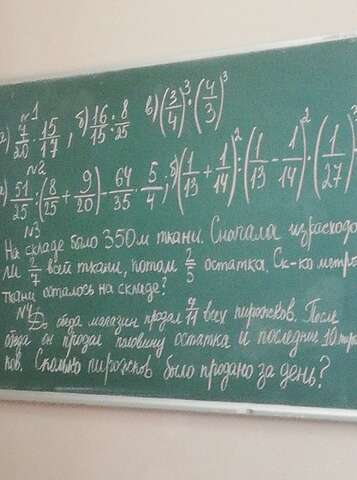 №1
а) 7/20 · 15/17, б) 16/15 : 8/25 в) (3/4)³ · (4/3)³
№2
а) 51/25 : (8/25 + 9/20) - 64/35 · 5/4; б) (1/13 + 1/14)² : (1/13 - 1/14)² · (1/27)
№3
На складе было 350м ткани. Сначала израсходо
ли 2/7 всей ткани, потом 2/5 остатка. Ск-ко метро
ткани осталось на складе?
№4 До обеда магазин продал 4/11 всех пирожков. После
обеда он продал половину остатка и последние 10 пиро
ков. Сколько пирожков было продано за день?